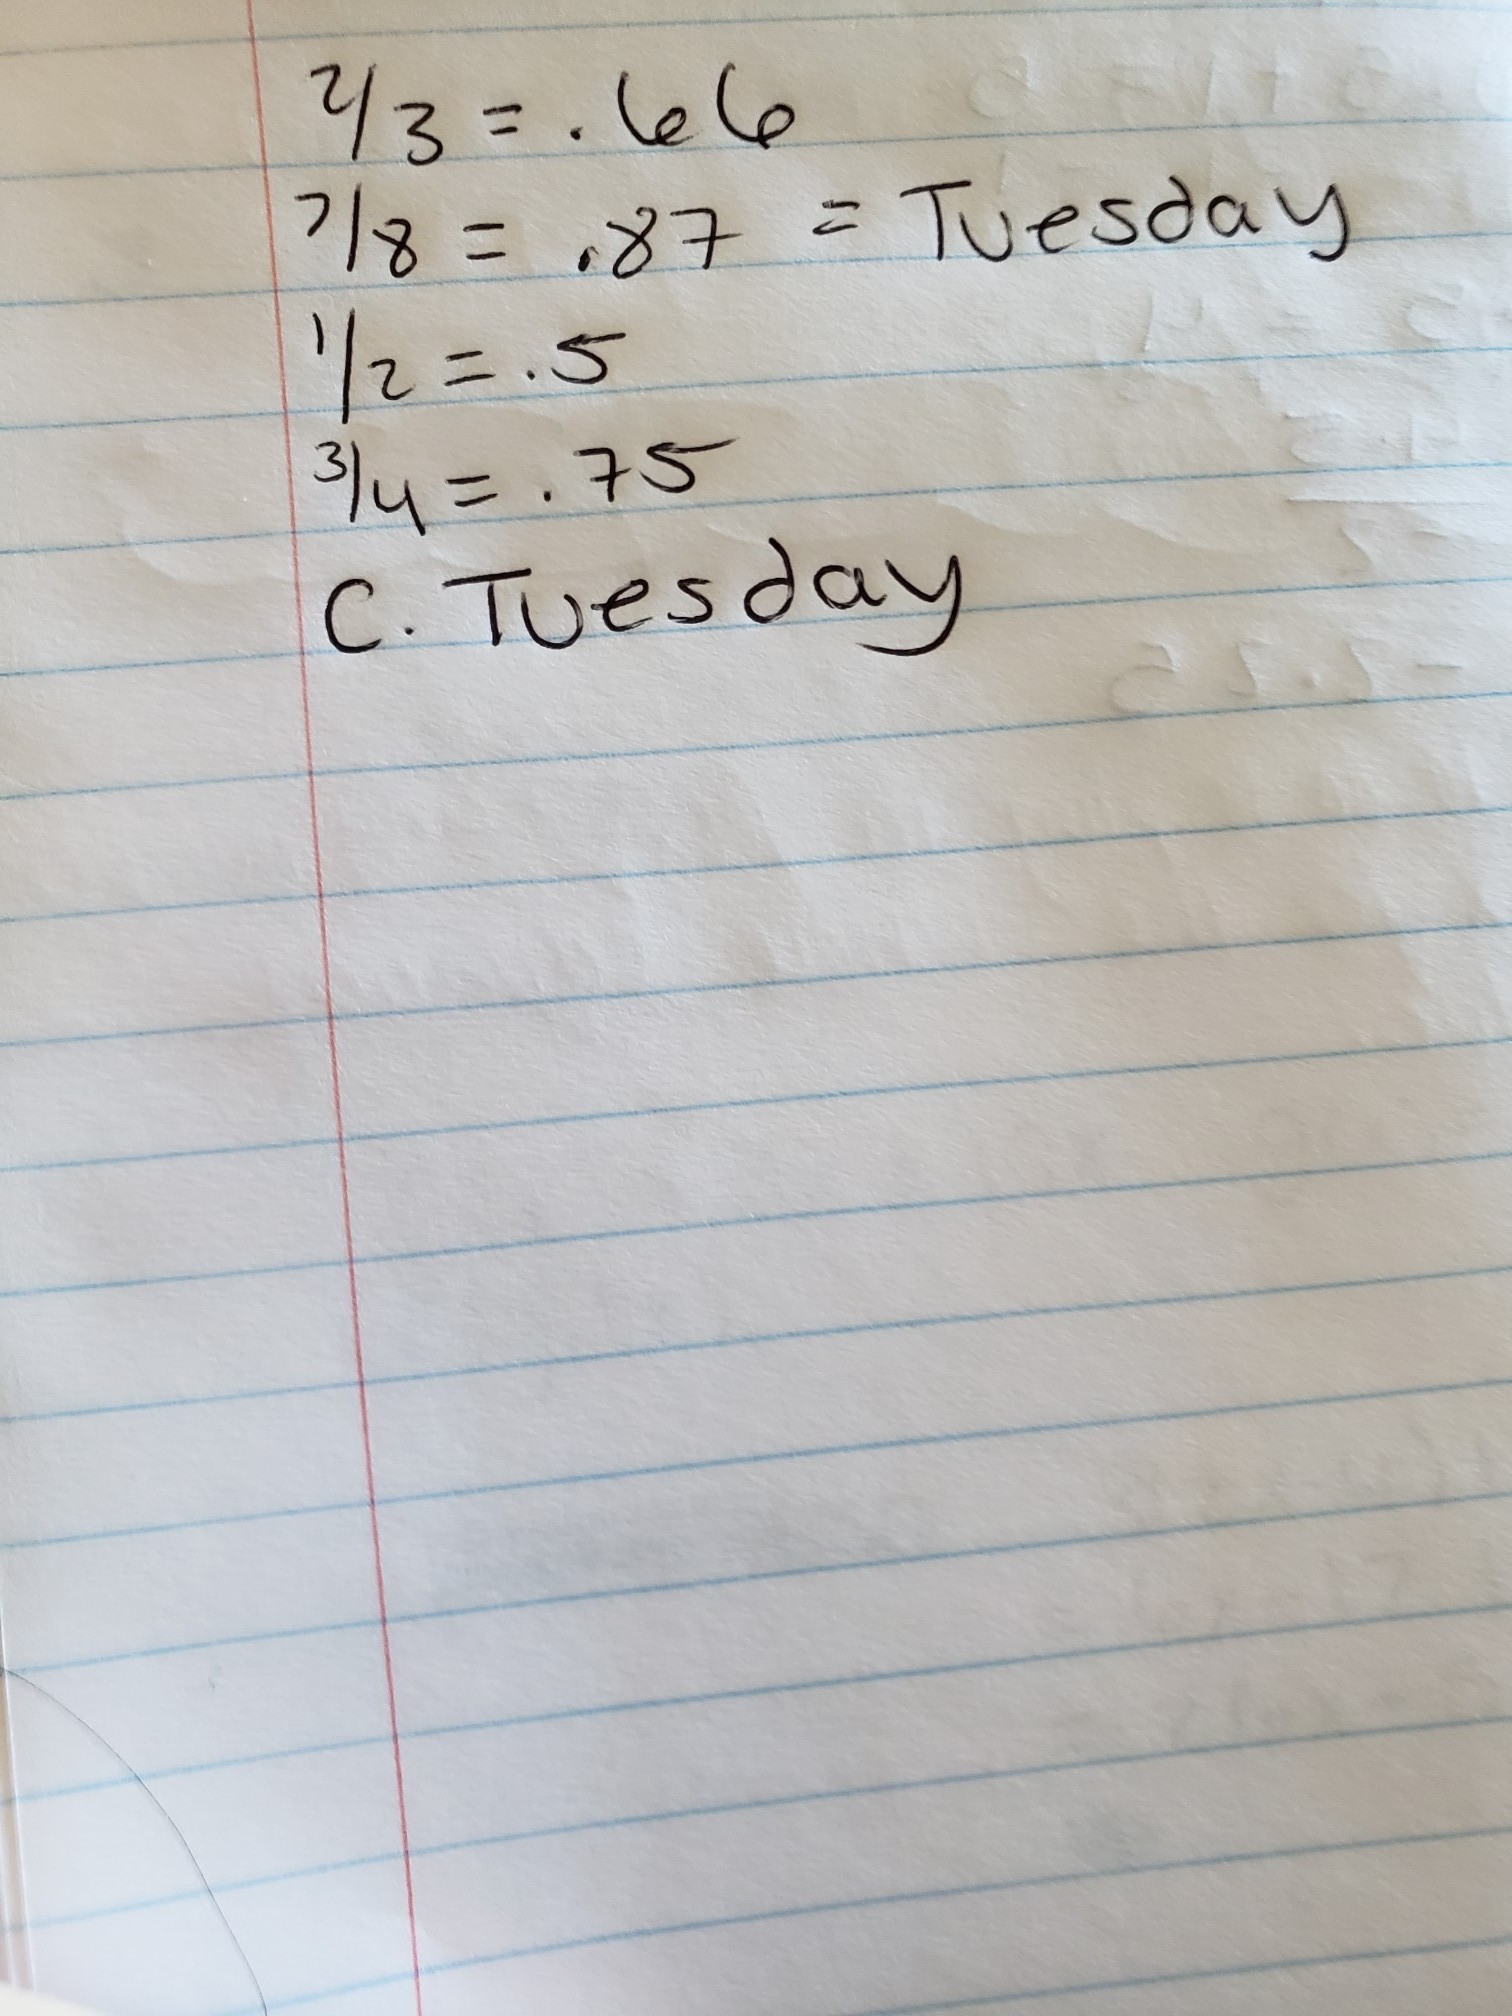 2/3 = .66
7/8 = .87 = Tuesday
1/2 = .5
3/4 = .75
C. Tuesday